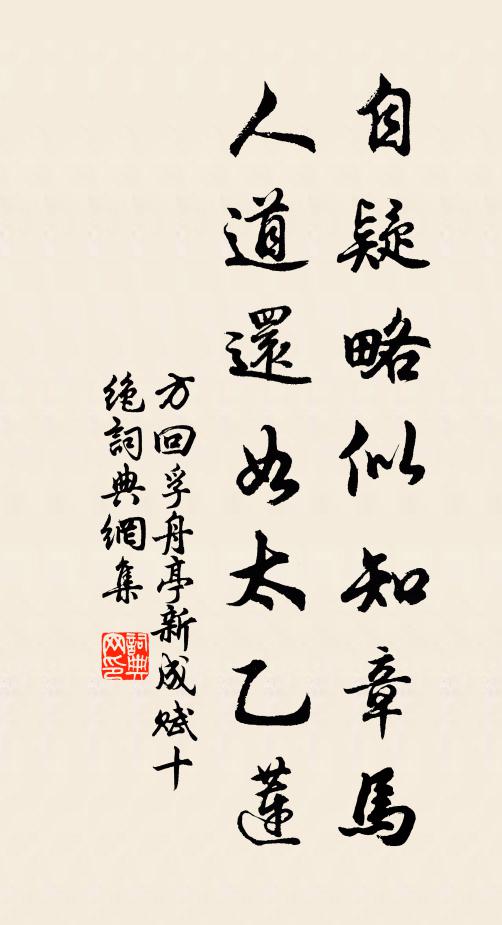 自疑略似知章馬
人道還如太乙蓮
方回孚舟亭新成賦十
絶詞典網集
詞典
网印